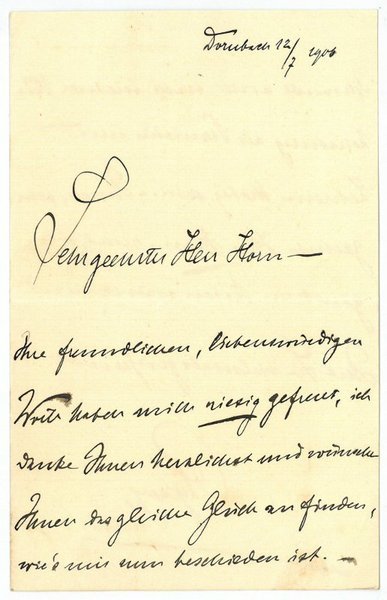 Dornbach 12/7 1906
Sehrgeehrter Herr Horn —
Ihre freundlichen, liebenswürdigen
Worte haben mich riesig gefreut, ich
danke Ihnen herzlichst und wünsche
Ihnen das gleiche Glück zu finden,
wie's mir nun beschieden ist. —